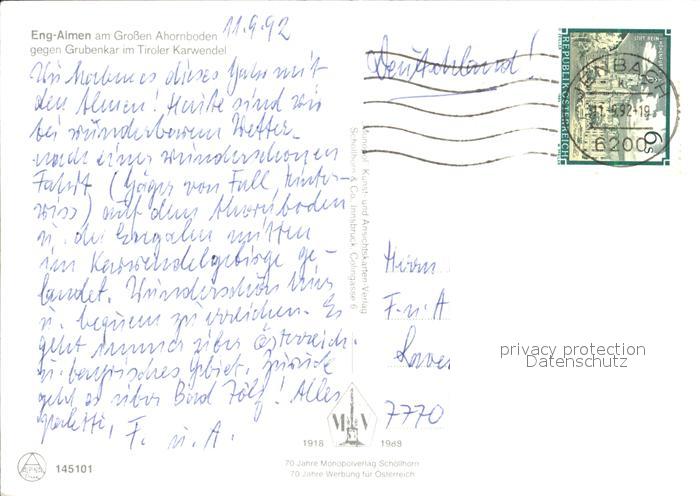 Eng-Almen am Großen Ahornboden
gegen Grubenkar im Tiroler Karwendel
11.9.92
Wir haben es dieses Jahr mit
den Almen! Heute sind wir
bei wunderbarem Wetter
nach einer wunderschönen
Fahrt (Jäger von Fall, Hinter-
riss) auf dem Ahornboden
u. der Engalm mitten
im Karwendelgebirge ge-
landet. Wunderschön hier
u. bequem zu erreichen. Es
geht immer über Österreich.
u. bayrisches Gebiet. Zurück
geht es über Bad Tölz! Alles
paletti, F. u. A.
145101
Monopol Kunst- und Ansichtskarten-Verlag
Schöllhorn & Co. Innsbruck, Colingasse 6
1918 M V 1988
70 Jahre Monopolverlag Schöllhorn
70 Jahre Werbung für Österreich
Deutschland!
REPUBLIK ÖSTERREICH
STIFT REIN-
6 S
JENBACH
11.-9.92-19
6200
Herrn
F. u. A
7770
privacy protection
Datenschutz